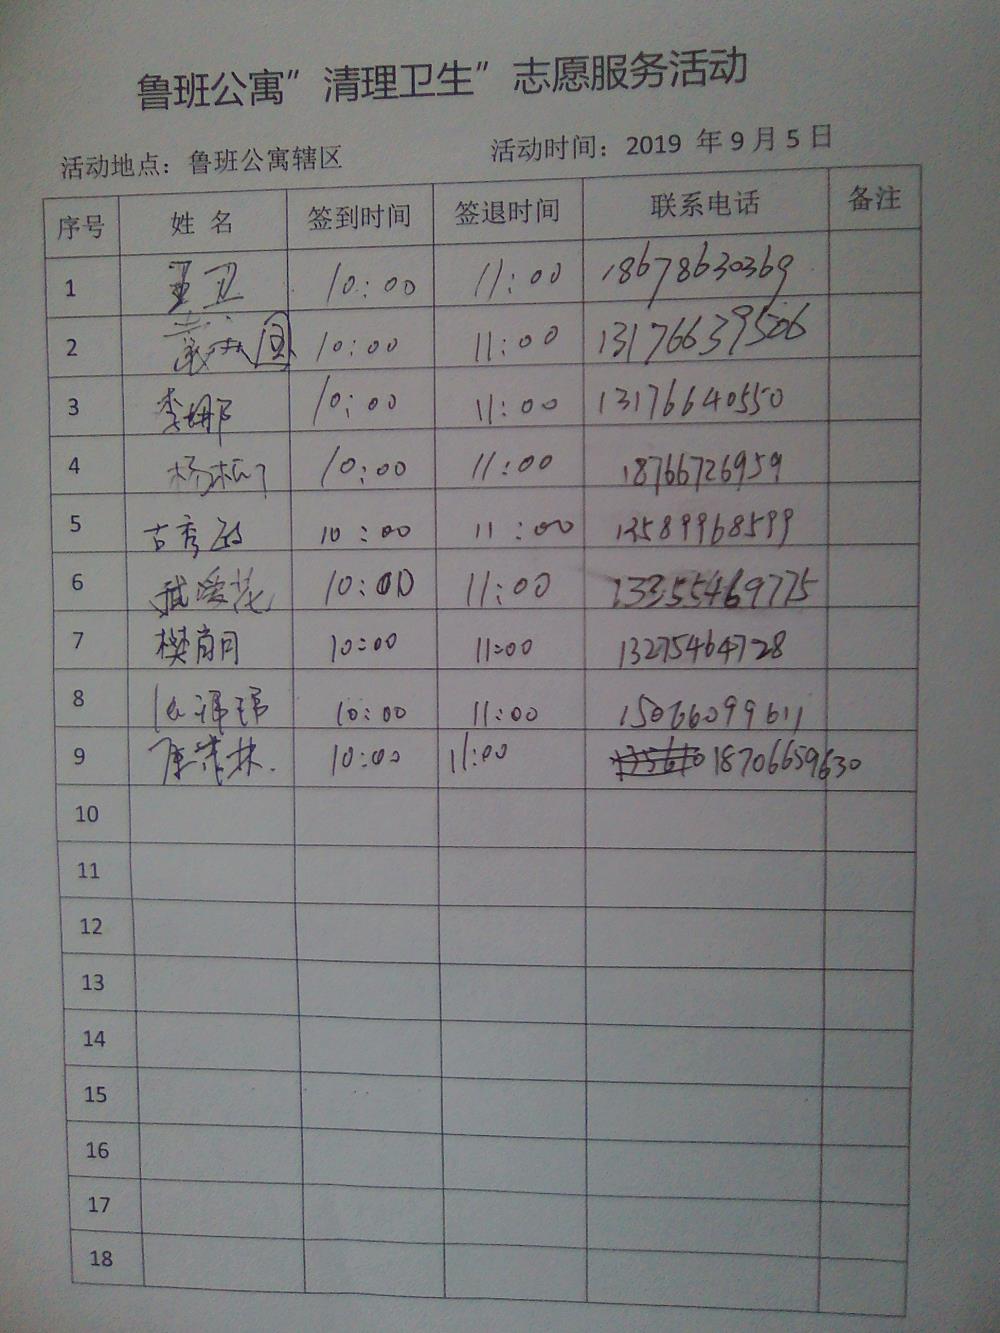 鲁班公寓”清理卫生”志愿服务活动
活动地点：鲁班公寓辖区 活动时间：2019 年 9 月 5 日
序号 姓 名 签到时间 签退时间 联系电话 备注
1 王卫 10:00 11:00 18678630369
2 10:00 11:00 13176639506
3 李娜 10:00 11:00 13176640550
4 杨 10:00 11:00 18766726959
5 古秀 10:00 11:00 13589968599
6 武爱花 10:00 11:00 13355469775
7 樊肖月 10:00 11:00 13275464728
8 10:00 11:00 15066099611
9 林 10:00 11:00 18706659630
10
11
12
13
14
15
16
17
18